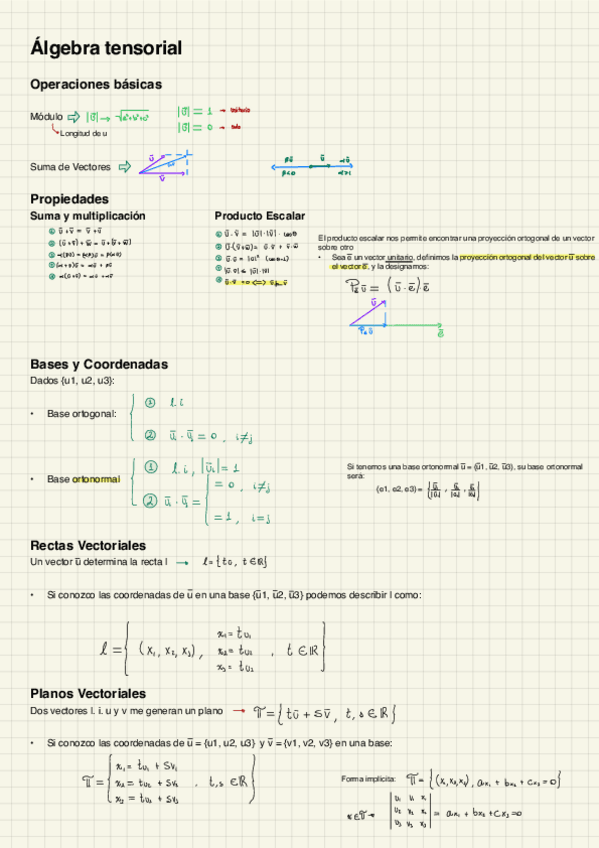 Álgebra tensorial
Operaciones básicas
Módulo ⇨ |ū| → √a²+b²+c² |ū| = 1 → unitario
|ū| = 0 → nulo
Longitud de u
Suma de Vectores ⇨
Propiedades
Suma y multiplicación
① ū + v̄ = v̄ + ū
② (ū + v̄) + w̄ = ū + (v̄ + w̄)
Producto Escalar
① ū · v̄ = |ū| · |v̄| · cos θ
② ū·(v̄+w̄) = ū · v̄ + ū · w̄
El producto escalar nos permite encontrar una proyección ortogonal de un vector
sobre otro
• Sea e̅ un vector unitario, definimos la proyección ortogonal del vector u̅ sobre
el vector e̅, y la designamos:
Pₑ ū = (ū · ē) · ē
ū
Pₑ ū
ē
Bases y Coordenadas
Dados {u1, u2, u3}:
• Base ortogonal:
① l.i
② ūᵢ · ūⱼ = 0 , i≠j
• Base ortonormal
① l.i, |ūᵢ| = 1
② ūᵢ · ūⱼ = = 0 , i≠j
= 1 , i=j
Si tenemos una base ortonormal u̅ = (u̅1, u̅2, u̅3), su base ortonormal
será:
(e1, e2, e3) =
Rectas Vectoriales
Un vector v̅ determina la recta l → l = { tū, t ∈ ℝ }
• Si conozco las coordenadas de u̅ en una base {u̅1, u̅2, u̅3} podemos describir l como:
x₁ = tu₁
l = { (x₁, x₂, x₃), x₂ = tu₂ , t ∈ ℝ }
x₃ = tu₃
Planos Vectoriales
Dos vectores l. i. u y v me generan un plano → π = { tū + sv̄, t, s ∈ ℝ }
• Si conozco las coordenadas de u̅ = {u1, u2, u3} y v̅ = {v1, v2, v3} en una base:
x₁ = tu₁ + sv₁
π = { x₂ = tu₂ + sv₂ , t,s ∈ ℝ }
x₃ = tu₃ + sv₃
Forma implícita: π = { (x₁,x₂,x₃), ax₁ + bx₂ + cx₃ = 0 }
u₁ v₁ x₁
x ∈ π → u₂ v₂ x₂ = ax₁ + bx₂ + cx₃ = 0
u₃ v₃ x₃